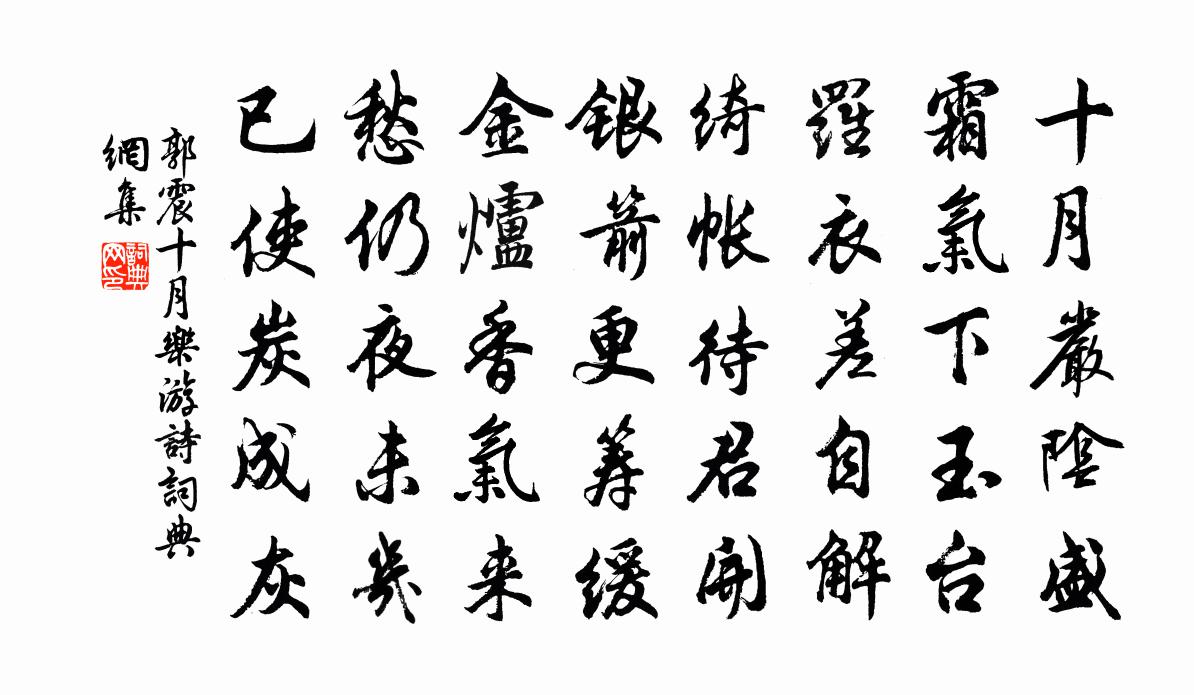 十月嚴陰盛
霜氣下玉台
羅衣羞自解
綺帳待君開
銀箭更籌緩
金爐香氣来
愁仍夜未幾
已使炭成灰
郭震十月樂游詩詞典
網集
詞典
网印